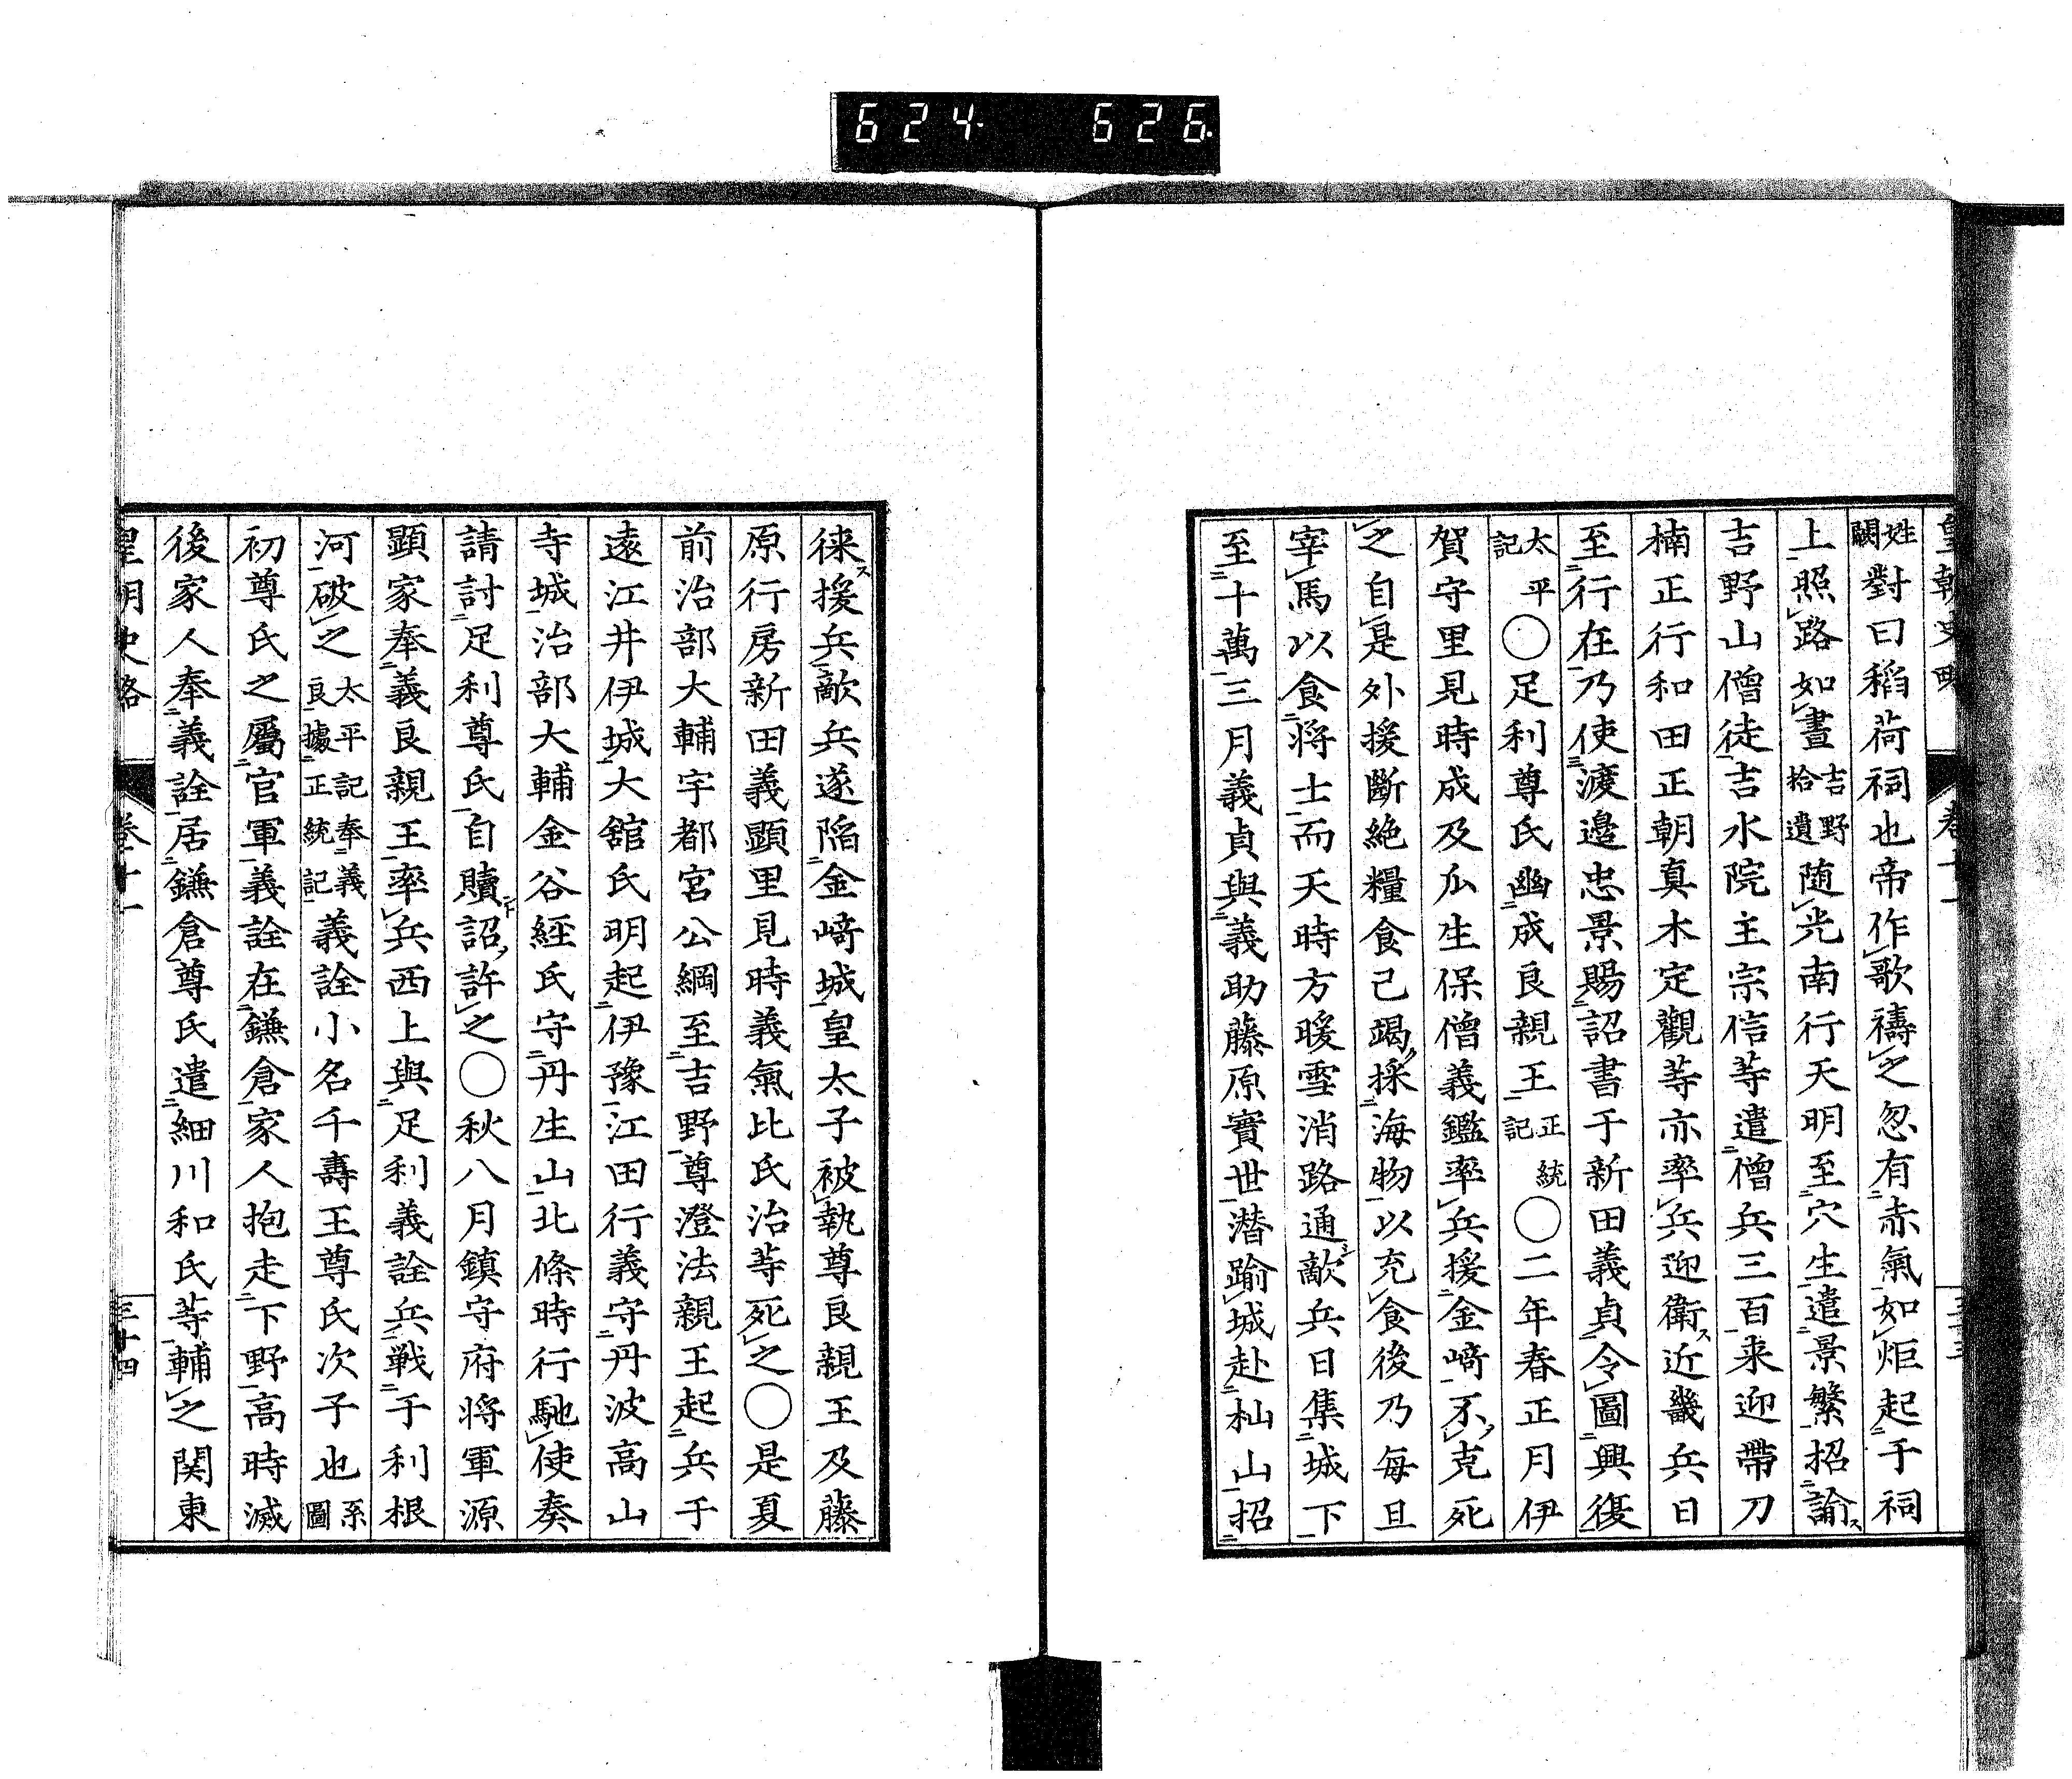 624. 626.
皇朝史略 卷十一
姓闕對曰稻荷祠也帝作歌禱之忽有赤氣如炬起于祠
上照路如晝吉野拾遺随光南行天明至穴生遣景繁招諭
吉野山僧徒吉水院主宗信等遣僧兵三百来迎帶刀
楠正行和田正朝真木定觀等亦率兵迎衛近畿兵日
至行在乃使渡邉忠景賜詔書于新田義貞令圖興復
太平記○足利尊氏幽成良親王正統記○二年春正月伊
賀守里見時成及瓜生保僧義鑑率兵援金﨑不克死
之自是外援斷絶糧食己竭採海物以充食後乃每旦
宰馬以食将士而天時方暖雪消路通敵兵日集城下
至十萬三月義貞與義助藤原實世潜踰城赴杣山招
徠援兵敵兵遂陷金﨑城皇太子被執尊良親王及藤
原行房新田義顯里見時義氣比氏治等死之○是夏
前治部大輔宇都宮公綱至吉野尊澄法親王起兵于
遠江井伊城大舘氏明起伊豫江田行義守丹波高山
寺城治部大輔金谷經氏守丹生山北條時行馳使奏
請討足利尊氏自贖詔許之○秋八月鎮守府将軍源
顯家奉義良親王率兵西上與足利義詮兵戦于利根
河破之太平記奉義良據正統記義詮小名千壽王尊氏次子也系圖
初尊氏之屬官軍義詮在鎌倉家人抱走下野高時滅
後家人奉義詮居鎌倉尊氏遣細川和氏等輔之関東
皇朝史略 卷十一 三十四